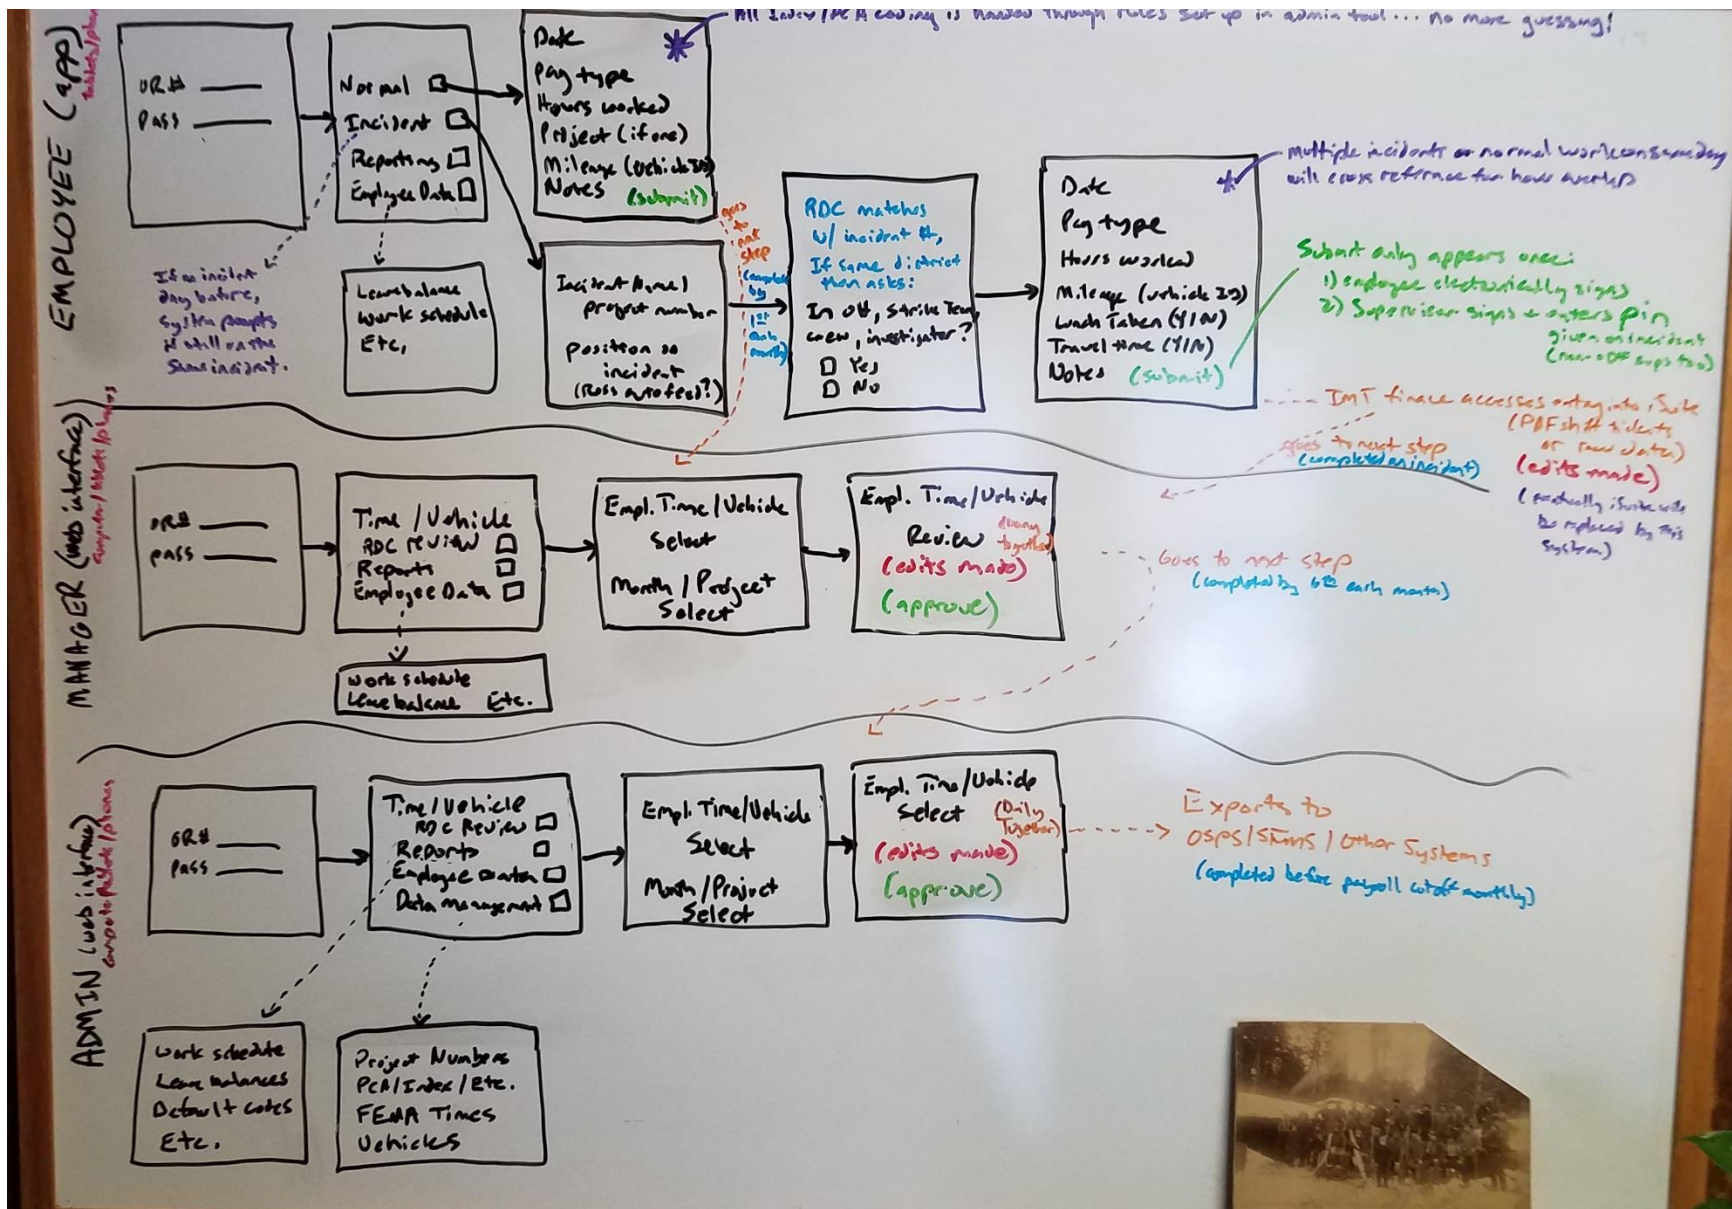 All Index/PCA coding is handled through rules set up in admin tool... no more guessing!
EMPLOYEE (app)
OR#
Pass
Normal
Incident
Reporting
Employee Data
Date
Pay type
Hours worked
Project (if one)
Mileage (vehicle ID)
Notes (submit)
If an incident
day before,
system prompts
if still on the
same incident.
Leave balance
Work schedule
Etc.
Incident Name/
project number
position on
incident
(Ross autofeed?)
goes
to
next
step
(completed
by
1st
each
month)
RDC matches
w/ incident #,
If same district
then asks:
In off, Strike Team,
crew, investigator?
Yes
No
Date
Pay type
Hours worked
Mileage (vehicle ID)
Lunch Taken (Y/N)
Travel time (Y/N)
Notes (submit)
multiple incidents or normal work on same day
will cross reference for hour overlap
Submit only appears once:
1) employee electronically signs
2) Supervisor signs + enters pin
given on incident
IMT finance accesses entry into iSuite
(PDF shift tickets
or raw data)
(edits made)
(eventually iSuite will
be replaced by this
system)
goes to next step
(completed on incident)
MANAGER (web interface)
computer/tablets/phones
OR#
pass
Time/Vehicle
RDC review
Reports
Employee Data
Work schedule
Leave balance Etc.
Empl. Time/Vehicle
Select
Month/Project
Select
Empl. Time/Vehicle
Review
together)
(edits made)
(approve)
Goes to next step
(completed by 6th each month)
ADMIN (web interface)
computer/tablets/phones
OR#
Pass
Time/Vehicle
RDC Review
Reports
Employee Data
Data management
Empl. Time/Vehicle
Select
Month/Project
Select
Empl. Time/Vehicle
Select (Daily
Together)
(edits made)
(approve)
Exports to
OSPS/SFMS/Other Systems
(completed before payroll cutoff monthly)
Work schedule
Leave balances
Default codes
Etc.
Project Numbers
PCA/Index/Etc.
FEMA Times
Vehicles